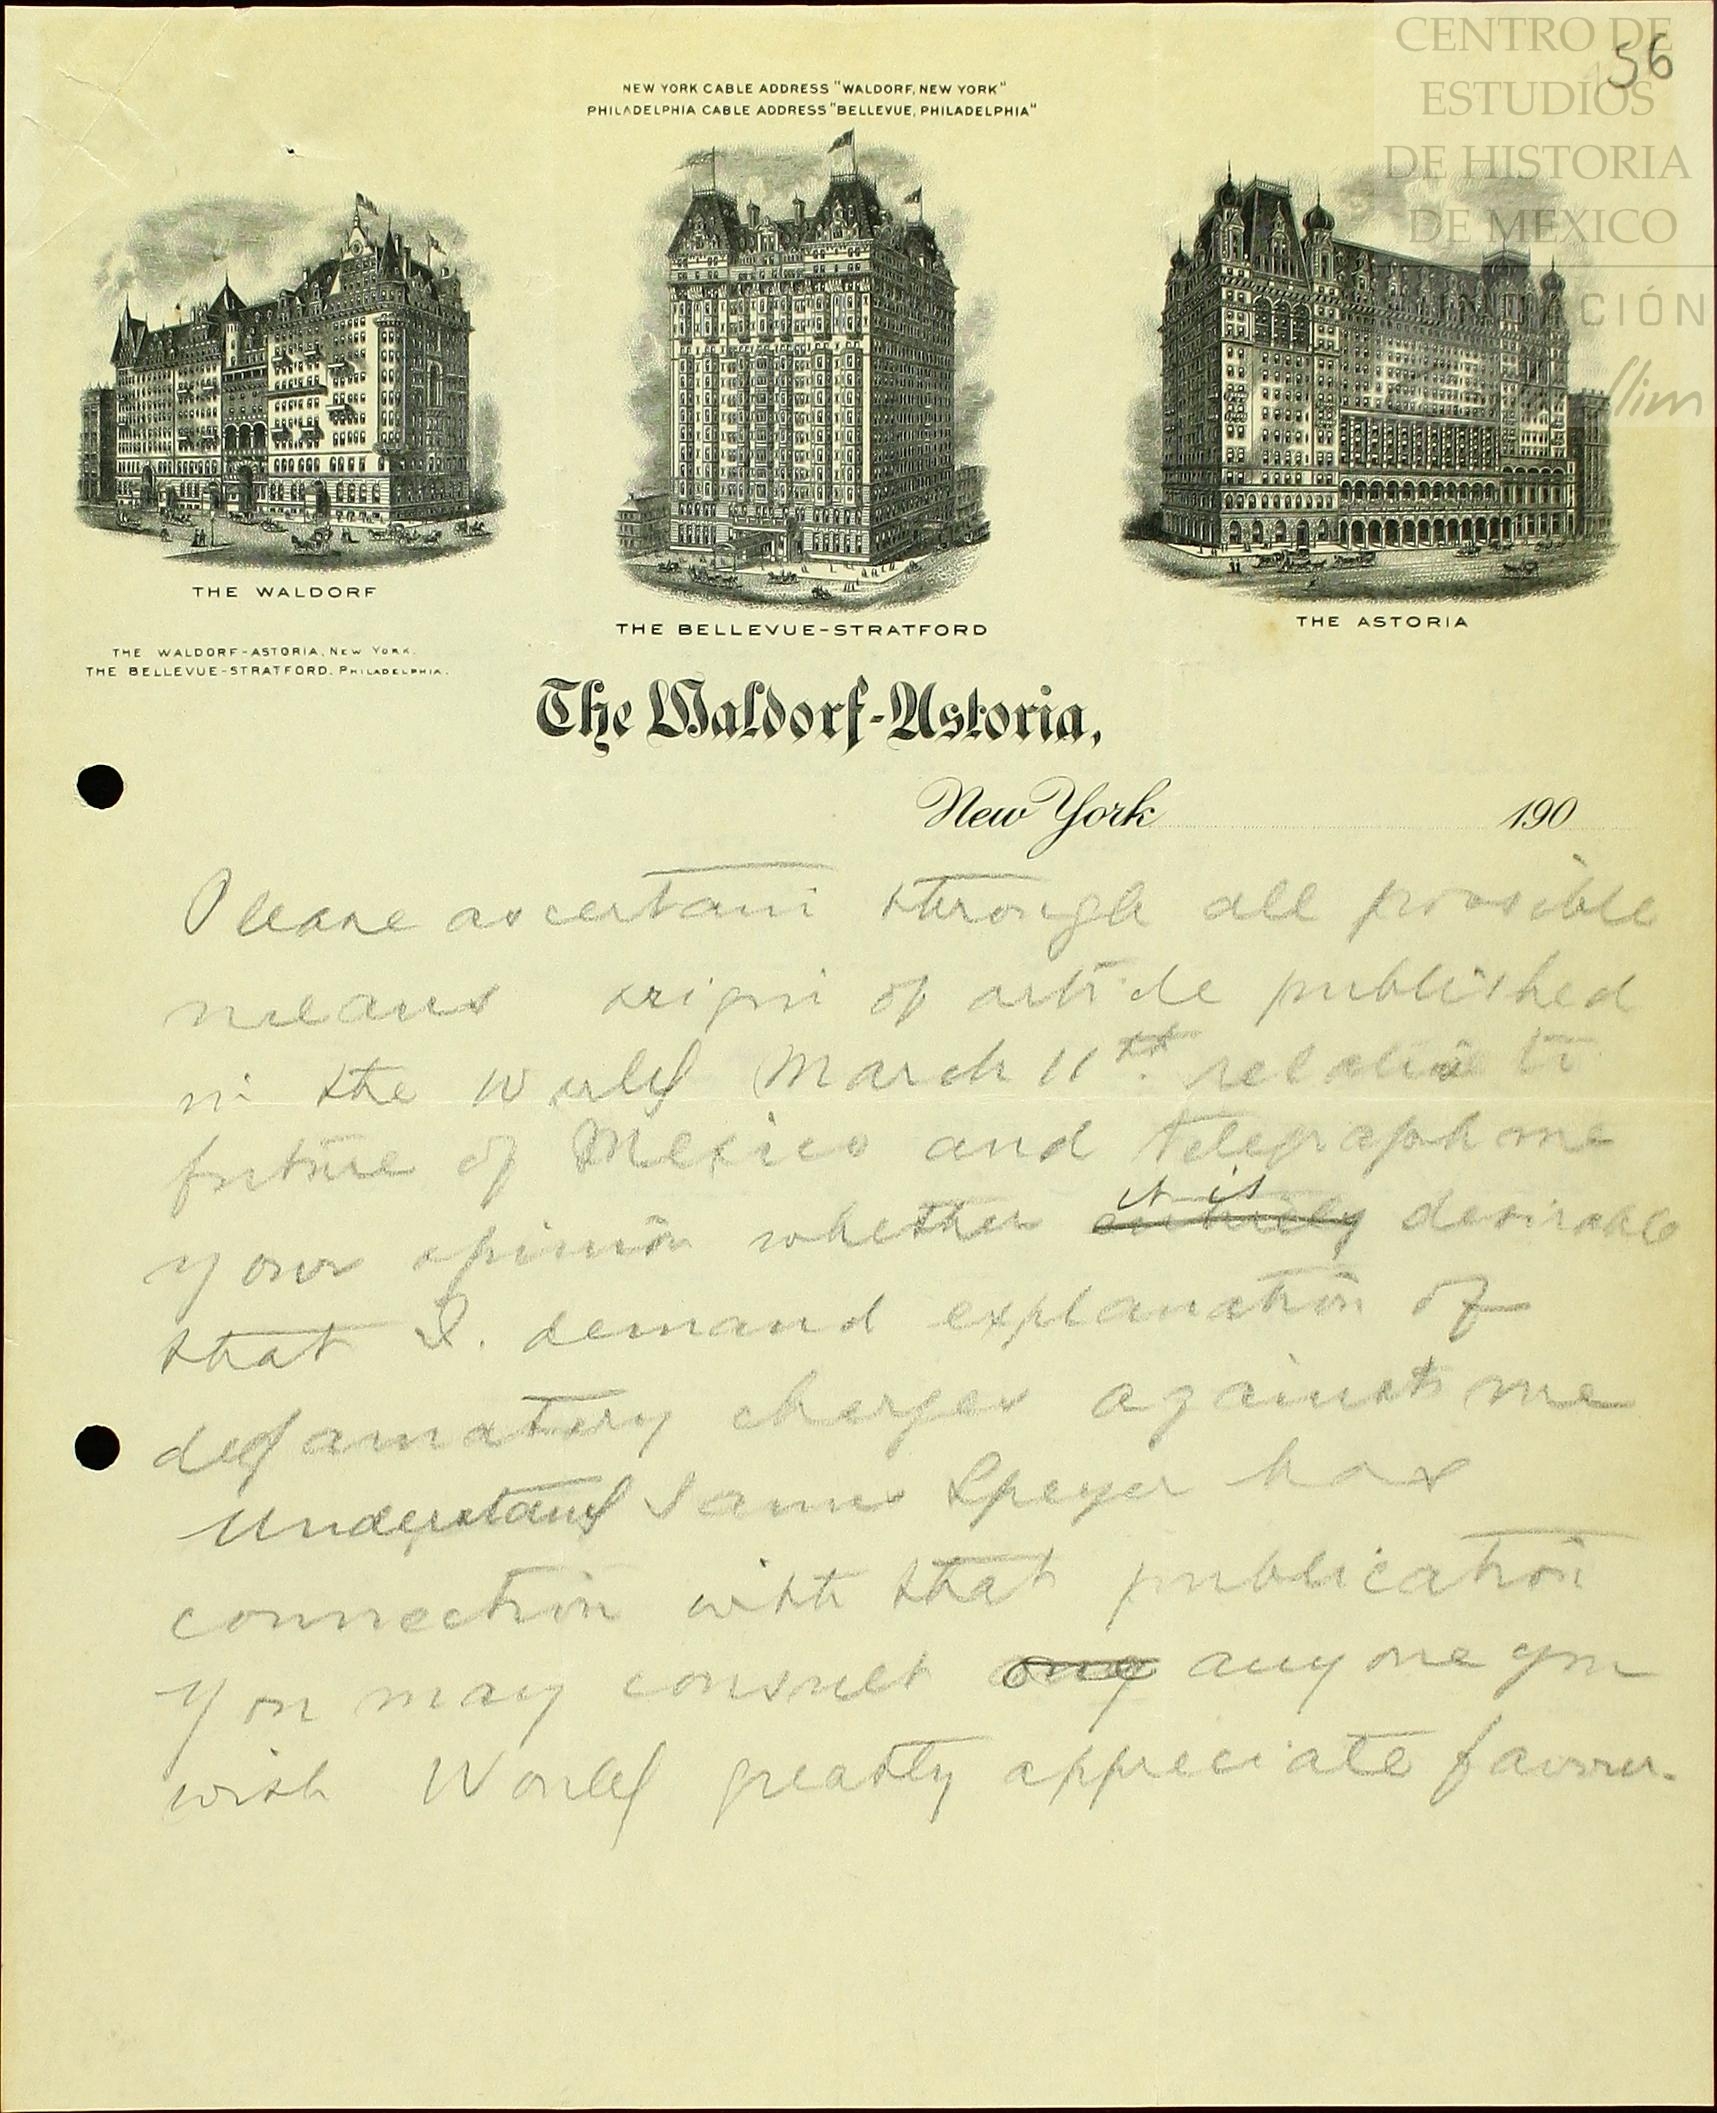 CENTRO DE
ESTUDIOS
DE HISTORIA
DE MEXICO
FUNDACIÓN
Slim
56
NEW YORK CABLE ADDRESS "WALDORF, NEW YORK"
PHILADELPHIA CABLE ADDRESS "BELLEVUE, PHILADELPHIA"
THE WALDORF
THE BELLEVUE-STRATFORD
THE ASTORIA
THE WALDORF-ASTORIA, NEW YORK.
THE BELLEVUE-STRATFORD, PHILADELPHIA.
The Waldorf-Astoria,
New York 190
Please ascertain through all possible
means origin of article published
in the World March 11th. relative to
future of Mexico and telegraph me
it is
your opinion whether entirely desirable
that I. demand explanation of
defamatory charges against me
Understand James Speyer has
connection with that publication
You may consult ony anyone you
wish Would greatly appreciate favour.